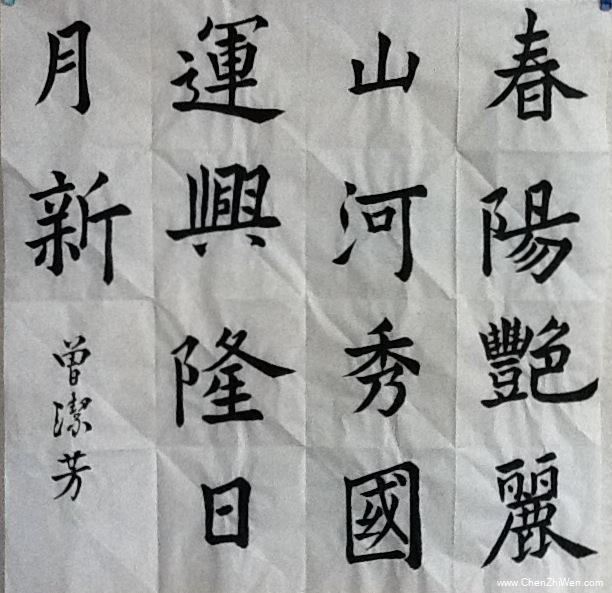 春陽艷麗
山河秀國
運興隆日
月新
曾潔芳
www.ChenZhiWen.com